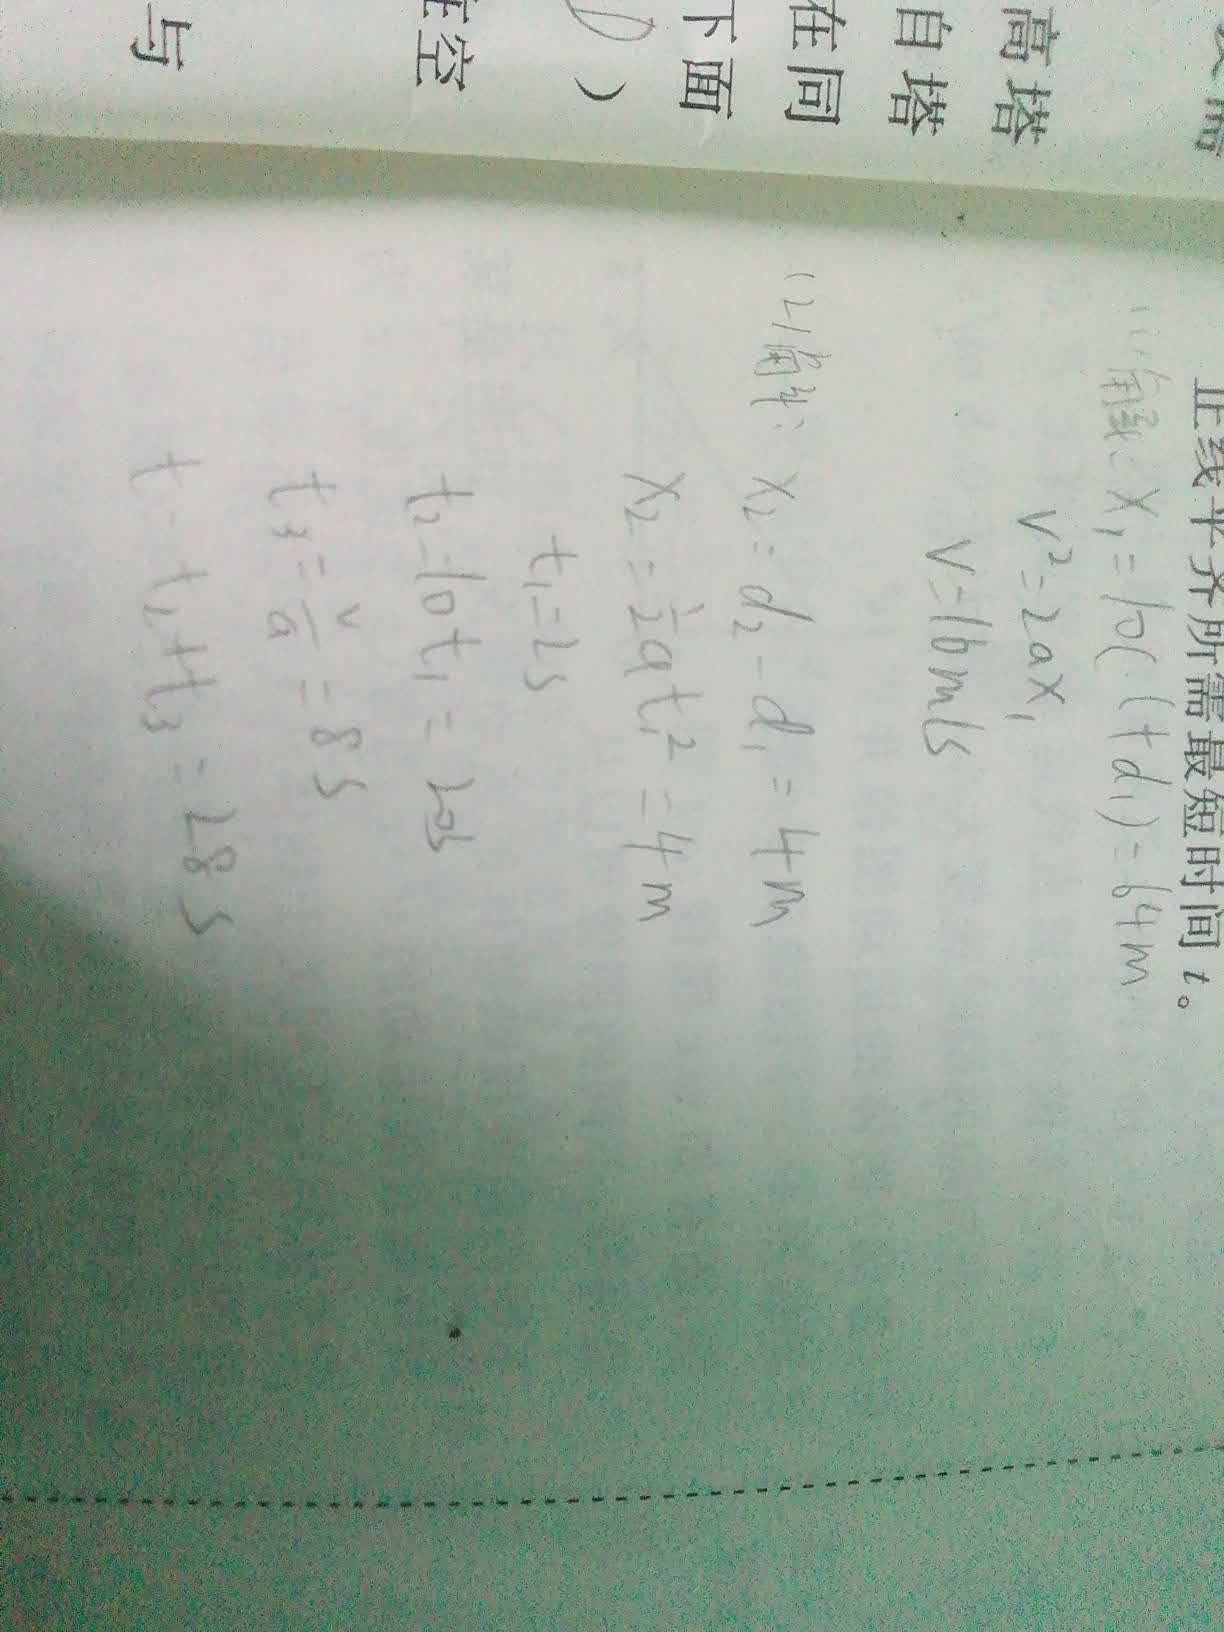 高塔
自塔
在同
下面
）
空
与
正线平齐所需最短时间 t。
(1)解: X₁=10(l+d₁)=64m
v²=2ax₁
v=16m/s
(2)解: x₂=d₂-d₁=4m
x₂=½at₁²=4m
t₁=2s
t₂=10t₁=20s
t₃=v/a=8s
t=t₂+t₃=28s